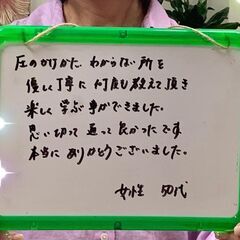 圧のかけかた、わからない所を
優しく丁寧に何度も教えて頂き
楽しく学ぶ事ができました。
思い切って通って良かったです
本当にありがとうございました。
女性 50代